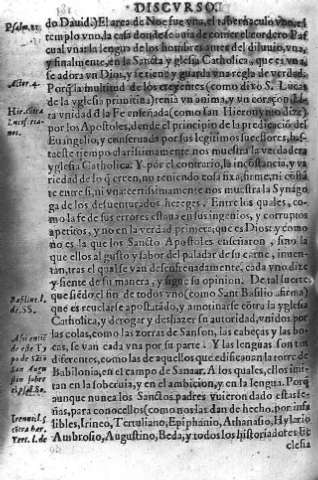 DISCVRSO
do Dauid.) El arca de Noe fue vna, el tabernaculo vno, el
templo vno, la casa donde se auia de comer el cordero Pas
cual vna: la lengua de los hombres antes del diluuio, vna,
y finalmente, en la Sancta yglesia Catholica, que es vna,
se adora vn Dios, y se tiene y guarda vna regla de verdad.
Porq̃ la multitud de los creyentes (como dixo S. Lucas
de la yglesia primitiua) tenia vn anima, y vn coraçon. La
vnidad de la Fe enseñada (como san Hieronymo dize)
por los Apostoles, dende el principio de la predicaciõ del
Euangelio, y conseruada por sus legitimos successores, has
ta este tiempo clarissimamente nos muestra la verdadera
yglesia Catholica. Y por el contrario, la incõstancia, y va
riedad de lo q̃ creen, no teniendo cosa fixa, firme, ni cõstã
te entre si, ni vna: certissimamente nos muestra la Synago
ga de los desuenturados hereges. Entre los quales, co-
mo la fe de sus errores estaua en sus ingenios, y corruptos
apetitos, y no en la verdad primera, que es Dios: y como
no es la que los Sancto Apostoles enseñaron, sino la
que ellos al gusto y sabor del paladar de su carne, inuen-
tan, tras el qual se van desenfrenadamente, cada vno dize
y siente de su manera, y sigue su opinion. De tal suerte
que siẽdo el fin de todos vno (como Sant Basilio afirma)
que es reuelarse apostatãdo, y amotinarse cõtra la yglesia
Catholica, y derogar y deshazer su autoridad, vnidos por
las colas, como las zorras de Sanson, las cabeças y las bo-
cas, se van cada vna por su parte. Y las lenguas son tan
diferentes, como las de aquellos que edificauan la torre de
Babilonia, en el campo de Sanaar. A los quales, ellos imi-
tan en la soberuia, y en el ambicion, y en la lengua. Porq̃
aunque nunca los Sanctos padres vuieron dado estas se-
ñas, para conocellos (como nos las dan de hecho, por infa
libles, Irineo, Tertuliano, Epiphanio, Athanasio, Hylario
Ambrosio, Augustino, Beda, y todos los historiadores Ec
clesia
Psalm.
Actor. 4.
Basilius l.
de SS.
san Augu